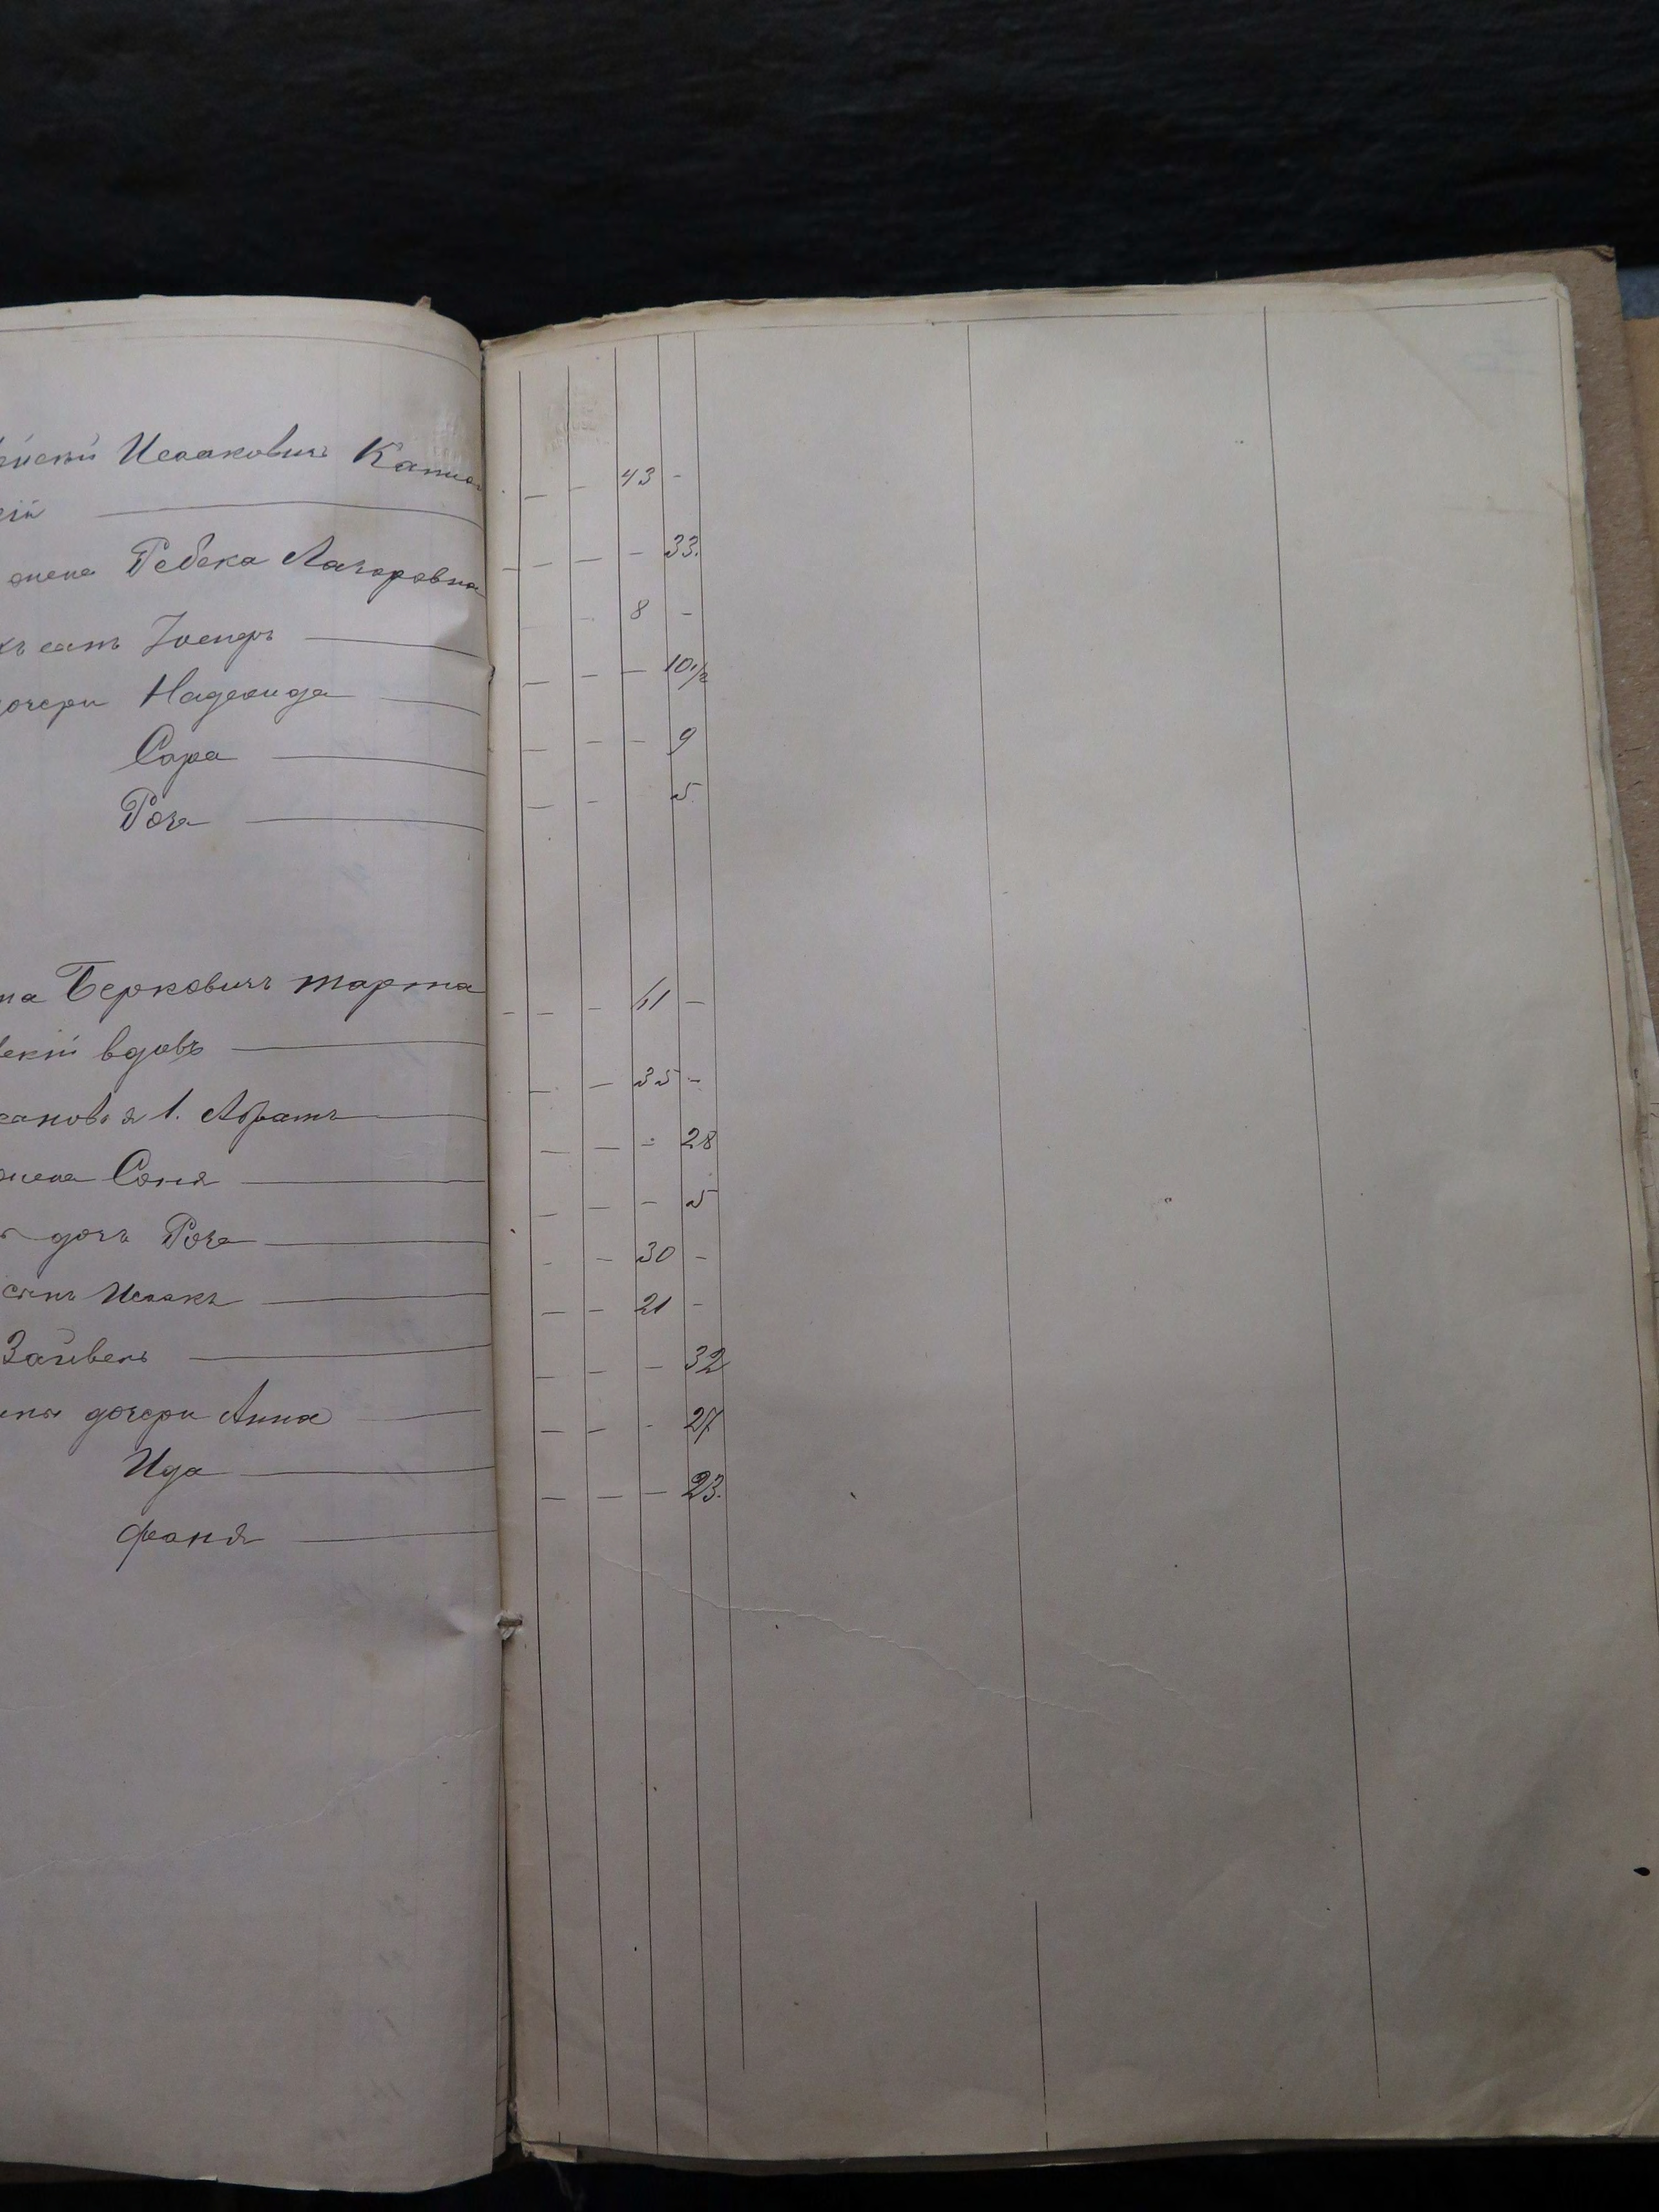 Исааковичъ Капка
скій
жена Ребека Лазаровна
ихъ сынъ Іосифъ
дочери Надежда
Сара
Роза
Берковичъ тарта
вскій вдовъ
сыновья 1. Абрамъ
жена Соня
дочь Роза
сынъ Исаакъ
Зайвель
дочери Анна
Ида
Фаня
- - 43 -
- - - 33.
- 8 -
- - - 10 1/2
- - - 9
- - 5
- - - 61 -
- - 35 -
- - - 28
- - - 5
- - 30 -
- - 21 -
- - - 32
- - - 27
- - - 23.